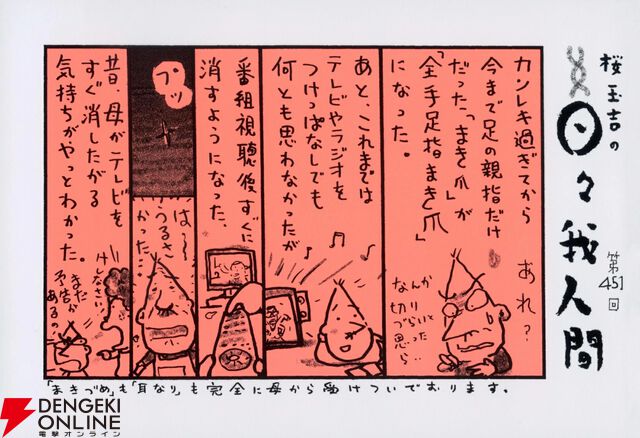 桜玉吉の
日々我人間
第451回
カンレキ過ぎてから
今まで足の親指だけ
だった「まき爪」が
「全手足指まき爪」
になった。
あれ?
なんか
切りづらいと
思ったら‥
あと、これまでは
テレビやラジオを
つけっぱなしでも
何とも思わなかったが
番組視聴後すぐに
消すようになった。
プツッ
は〜〜
うるさ
かった‥
昔、母がテレビを
すぐ消したがる
気持ちがやっとわかった。
けしなさい
まだ
予告が
あるの
「まきづめ」も「耳なり」も完全に母から受けついでおります。
DENGEKI
ONLINE
電撃オンライン